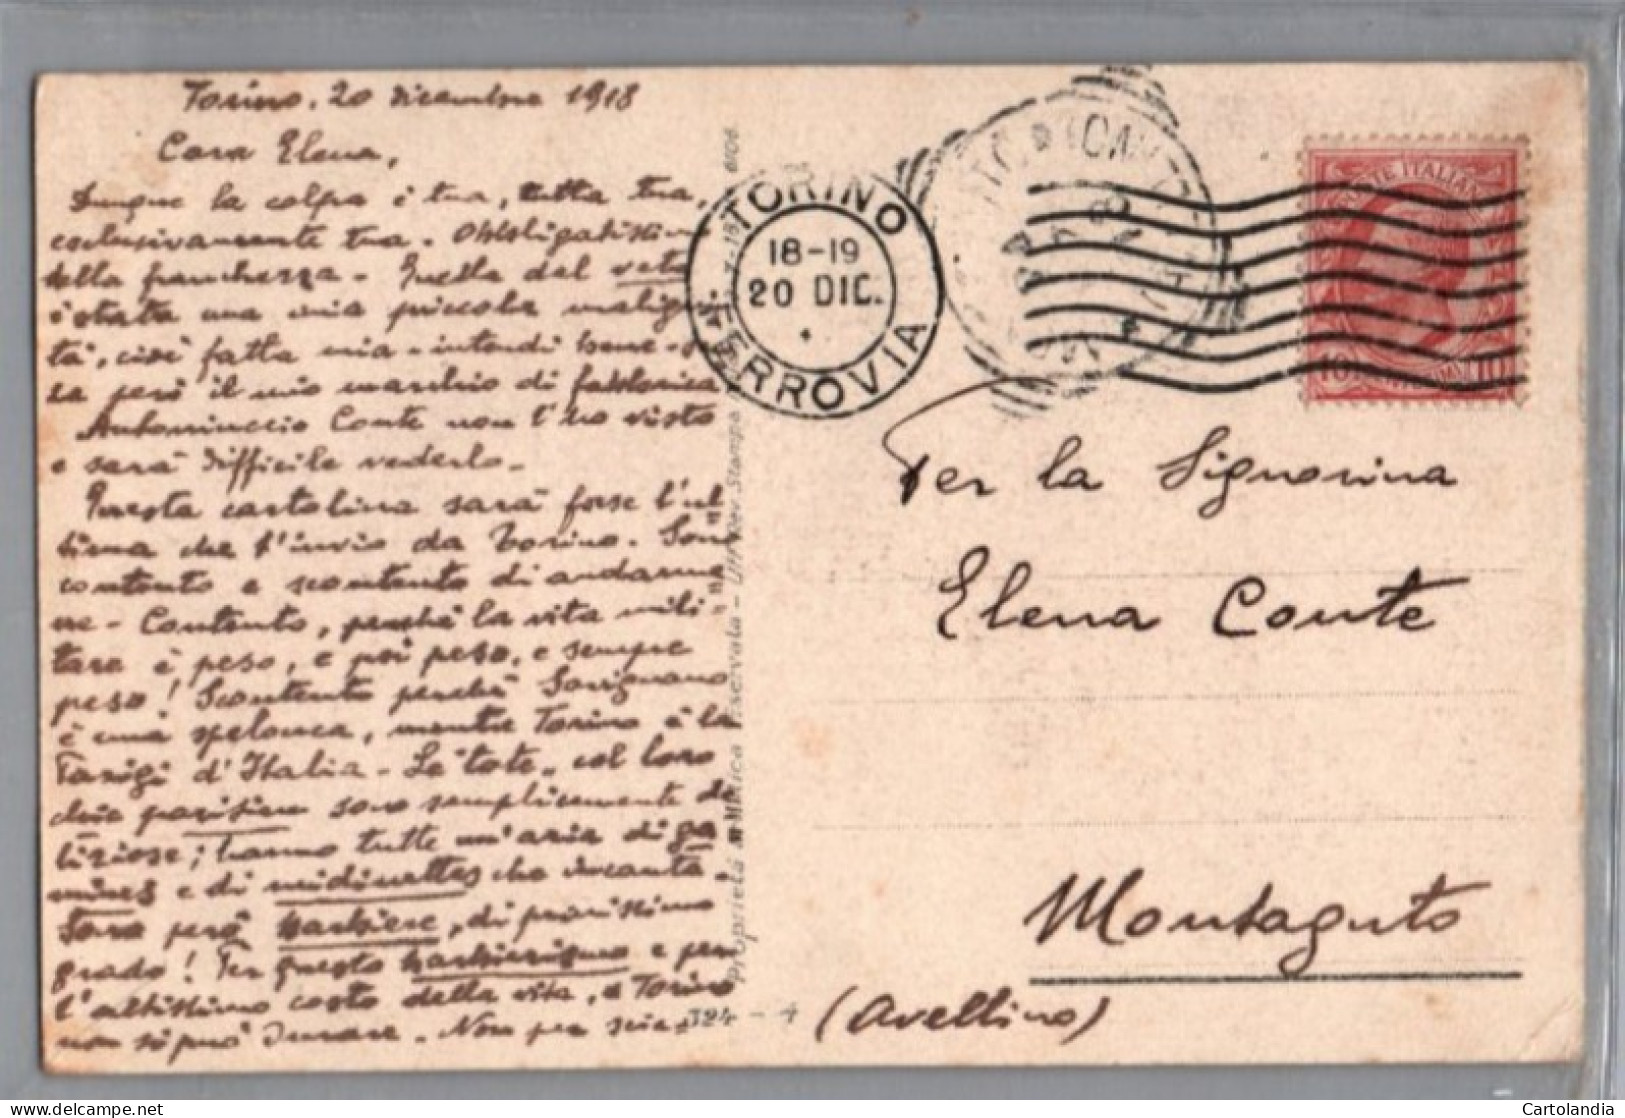 Torino, 20 dicembre 1918
Cara Elena,
Dunque la colpa è tua, tutta tua,
esclusivamente tua. Obbligatissim
della franchezza. Quella del veto
è stata una mia piccola maligni
tà, cioè fatta mia - intendi bene -
però il mio marchio di fabbrica
Antoniuccio Conte non l'ho visto
e sarà difficile vederlo.
Questa cartolina sarà forse l'ul=
tima che t'invio da Torino. Sono
contento e scontento di andarme=
ne. Contento, perché la vita mili=
tare è peso, e poi peso, e sempre
peso! Scontento perché Savignano
è una spelonca, mentre Torino è la
Parigi d'Italia. Le tote, col loro
chic parisien sono semplicemente de
liziose; hanno tutte un'aria di ga
mines e di midinettes che incanta.
Sono però di primissimo
grado! Per questo e per
l'altissimo costo della vita, a Torino
non si può durare. Non per
TORINO
18-19
20 DIC.
FERROVIA
POSTE ITALIANE
10 10
Proprietà artistica riservata - Uff. Rev. Stampa
324 - 4
Per la Signorina
Elena Conte
Montaguto
(Avellino)
delcampe.net
Cartolandia